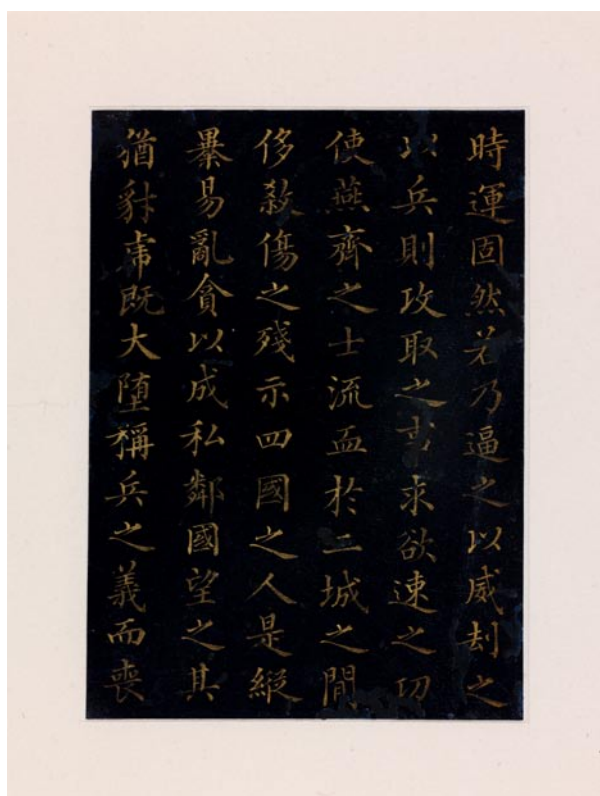 時運固然若乃逼之以威刦之
以兵則攻取之求欲速之功
使燕齊之士流血於二城之間
侈殺傷之殘示四國之人是縱
㬥易亂貪以成私鄰國望之其
猶豺虎既大墮稱兵之義而喪